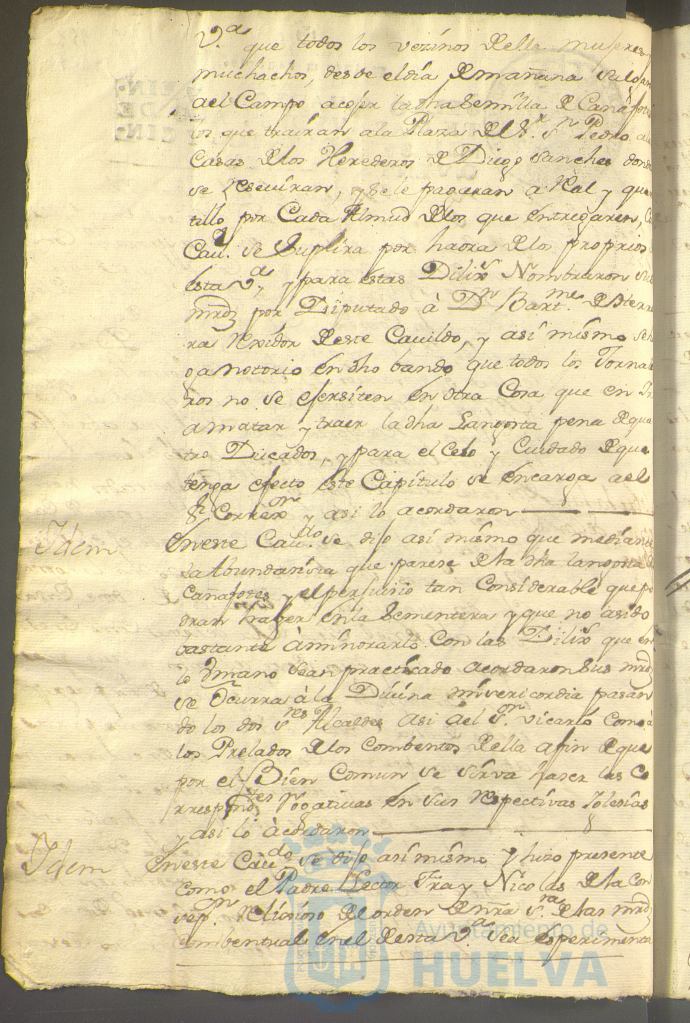 V.ª que todos los vezinos de ella mujeres y
muchachos, desde el dia de mañana salgan
ael Campo acojer la dha semilla de Canafo
tes que trairan ala Plaza del S.r S.n Pedro a la
Casas de los Herederos de Diego Sanches donde
se reseviran, y se le pagaran a Real y quar
tillo por Cada Almud de los que entregaren,
Cau.do se suplira por haora de los proprios
esta V.ª, y para estas Dilix.s Nombraron sus
mrds por Diputado à D.n Bart.me de
ra Rexidor de este Cauildo, y asi mismo se h
ga notorio en dho bando que todos los Torna
ros no se efersiten en otra Cosa que en
a matar y traer la dha Langosta pena de qua
tro Ducados, y para el Celo y Cuidado de que
tenga efecto este Capitulo se encarga a el
S.r Correx.or y asi lo acordaron
Idem En este Cau.do se dijo asi mismo que mediante
la Abundansia que parese de la dha langosta
Canafotes y el perjuisio tan Considerable que po
dran haser en la Sementera y que no a sido
bastante àminorarlo Con las Dilix.s que en
lo Umano se an practicado acordaron Sus mrds
se Ocurra à la Divina misericordia pasan
do los dos S.res Alcaldes asi a el S.r Vicario Como a
los Prelados de los Combentos de ella afin de que
por el Bien Comun se sirva haser las Co
rrespond.tes Rogativas en sus respectivas Iglesias
y asi lo àcordaron
Idem En este Cau.do se dijo asi mismo y hizo presente
como el Padre Lector Fray Nicolas de la Con
sep.on Relixioso del orden de nra S.ra de las mrds
combentual en el de esta V.ª sea esperimenta
Ayuntamiento de
HUELVA